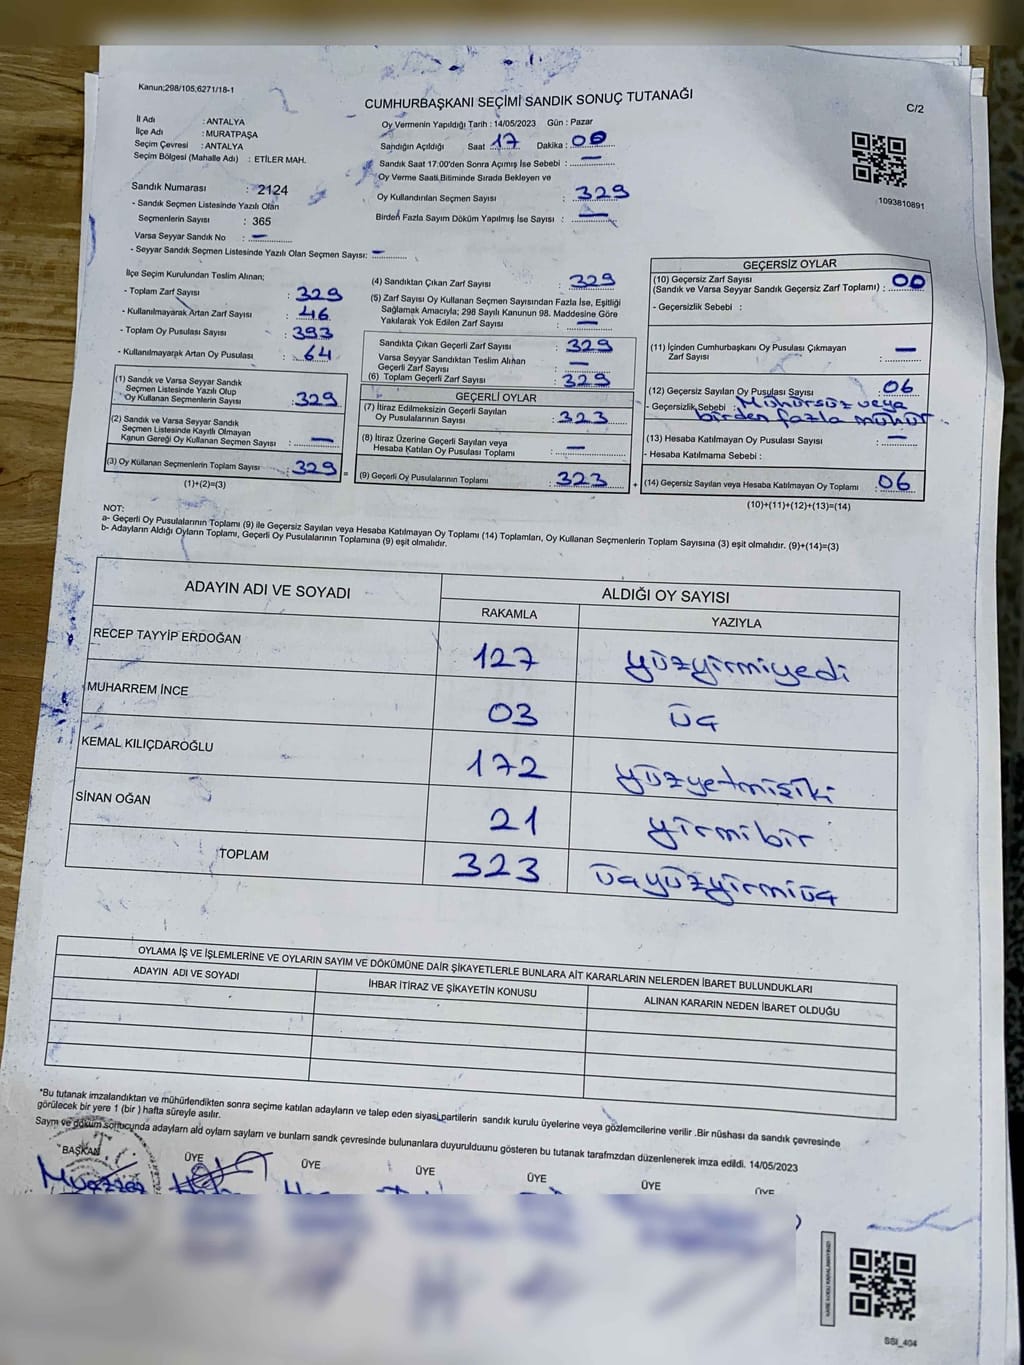 Kanun;298/105,6271/18-1
CUMHURBAŞKANI SEÇİMİ SANDIK SONUÇ TUTANAĞI
C/2
İl Adı : ANTALYA
İlçe Adı : MURATPAŞA
Seçim Çevresi : ANTALYA
Seçim Bölgesi (Mahalle Adı) : ETİLER MAH.
Oy Vermenin Yapıldığı Tarih : 14/05/2023 Gün : Pazar
Sandığın Açıldığı Saat 17 Dakika : 00
Sandık Saat 17:00'den Sonra Açımış İse Sebebi : —
Oy Verme Saati Bitiminde Sırada Bekleyen ve
Oy Kullandırılan Seçmen Sayısı : 329
Birden Fazla Sayım Döküm Yapılmış İse Sayısı : —
1093810891
Sandık Numarası : 2124
- Sandık Seçmen Listesinde Yazılı Olan
Seçmenlerin Sayısı : 365
Varsa Seyyar Sandık No : —
- Seyyar Sandık Seçmen Listesinde Yazılı Olan Seçmen Sayısı: —
İlçe Seçim Kurulundan Teslim Alınan;
- Toplam Zarf Sayısı : 329
- Kullanılmayarak Artan Zarf Sayısı : 46
- Toplam Oy Pusulası Sayısı : 393
- Kullanılmayarak Artan Oy Pusulası : 64
(1) Sandık ve Varsa Seyyar Sandık
Seçmen Listesinde Yazılı Olup
Oy Kullanan Seçmenlerin Sayısı : 329
(2) Sandık ve Varsa Seyyar Sandık
Seçmen Listesinde Kayıtlı Olmayan
Kanun Gereği Oy Kullanan Seçmen Sayısı : —
(3) Oy Kullanan Seçmenlerin Toplam Sayısı : 329
(1)+(2)=(3)
(4) Sandıktan Çıkan Zarf Sayısı : 329
(5) Zarf Sayısı Oy Kullanan Seçmen Sayısından Fazla İse, Eşitliği
Sağlamak Amacıyla; 298 Sayılı Kanunun 98. Maddesine Göre
Yakılarak Yok Edilen Zarf Sayısı : —
Sandıkta Çıkan Geçerli Zarf Sayısı : 329
Varsa Seyyar Sandıktan Teslim Alınan
Geçerli Zarf Sayısı : —
(6) Toplam Geçerli Zarf Sayısı : 329
GEÇERLİ OYLAR
(7) İtiraz Edilmeksizin Geçerli Sayılan
Oy Pusulalarının Sayısı : 323
(8) İtiraz Üzerine Geçerli Sayılan veya
Hesaba Katılan Oy Pusulası Toplamı : —
(9) Geçerli Oy Pusulalarının Toplamı : 323
GEÇERSİZ OYLAR
(10) Geçersiz Zarf Sayısı
(Sandık ve Varsa Seyyar Sandık Geçersiz Zarf Toplamı) : 00
- Geçersizlik Sebebi :
(11) İçinden Cumhurbaşkanı Oy Pusulası Çıkmayan
Zarf Sayısı : —
(12) Geçersiz Sayılan Oy Pusulası Sayısı : 06
- Geçersizlik Sebebi : Mühürsüz veya
birden fazla mühür
(13) Hesaba Katılmayan Oy Pusulası Sayısı : —
- Hesaba Katılmama Sebebi :
(14) Geçersiz Sayılan veya Hesaba Katılmayan Oy Toplamı : 06
(10)+(11)+(12)+(13)=(14)
NOT:
a- Geçerli Oy Pusulalarının Toplamı (9) ile Geçersiz Sayılan veya Hesaba Katılmayan Oy Toplamı (14) Toplamları, Oy Kullanan Seçmenlerin Toplam Sayısına (3) eşit olmalıdır. (9)+(14)=(3)
b- Adayların Aldığı Oyların Toplamı, Geçerli Oy Pusulalarının Toplamına (9) eşit olmalıdır.
ADAYIN ADI VE SOYADI
ALDIĞI OY SAYISI
RAKAMLA YAZIYLA
RECEP TAYYİP ERDOĞAN 127 yüzyirmiyedi
MUHARREM İNCE 03 üç
KEMAL KILIÇDAROĞLU 172 yüzyetmişiki
SİNAN OĞAN 21 yirmibir
TOPLAM 323 üçyüzyirmiüç
OYLAMA İŞ VE İŞLEMLERİNE VE OYLARIN SAYIM VE DÖKÜMÜNE DAİR ŞİKAYETLERLE BUNLARA AİT KARARLARIN NELERDEN İBARET BULUNDUKLARI
ADAYIN ADI VE SOYADI İHBAR İTİRAZ VE ŞİKAYETİN KONUSU ALINAN KARARIN NEDEN İBARET OLDUĞU
*Bu tutanak imzalandıktan ve mühürlendikten sonra seçime katılan adayların ve talep eden siyasi partilerin sandık kurulu üyelerine veya gözlemcilerine verilir .Bir nüshası da sandık çevresinde
görülecek bir yere 1 (bir ) hafta süreyle asılır.
Sayım ve döküm sonucunda adayların ald oyların sayların ve bunların sandk çevresinde bulunanlara duyurulduunu gösteren bu tutanak tarafmzdan düzenlenerek imza edildi. 14/05/2023
BAŞKAN ÜYE ÜYE ÜYE ÜYE ÜYE ÜYE
Muazzez
SSİ_404